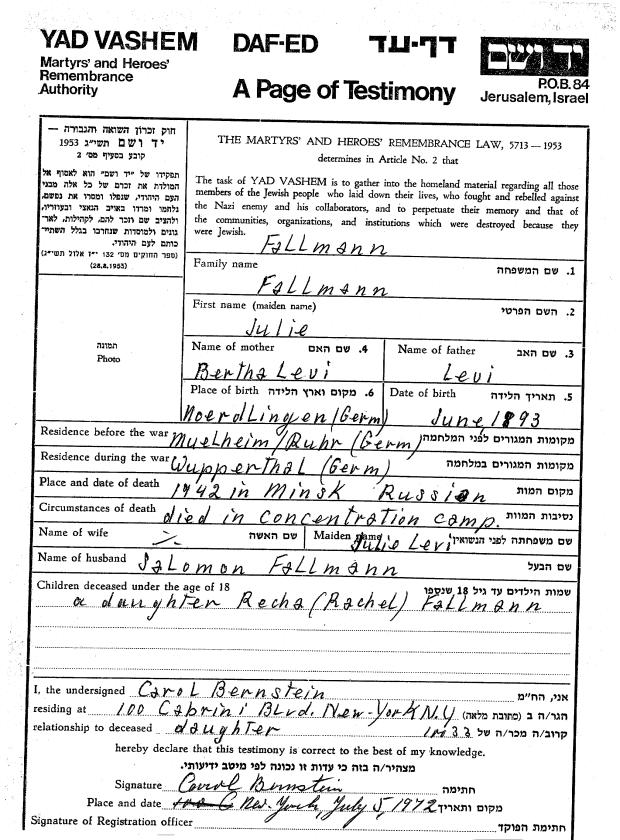 YAD VASHEM DAF-ED דף-עד יד ושם
Martyrs' and Heroes'
Remembrance
Authority
A Page of Testimony
P.O.B. 84
Jerusalem, Israel
חוק זכרון השואה והגבורה —
יד ושם תשי"ג 1953
קובע בסעיף מס' 2
תפקידו של "יד ושם" הוא לאסוף אל
המולדת את זכרם של כל אלה מבני
העם היהודי, שנפלו ומסרו את נפשם,
נלחמו ומרדו באויב הנאצי ובעוזריו,
ולהציב שם וזכר להם, לקהילות, לאר-
גונים ולמוסדות שנחרבו בגלל השתיי-
כותם לעם היהודי.
(ספר החוקים מס' 132 י"ז אלול תשי"ג)
(28.8.1953)
THE MARTYRS' AND HEROES' REMEMBRANCE LAW, 5713 — 1953
determines in Article No. 2 that
The task of YAD VASHEM is to gather into the homeland material regarding all those
members of the Jewish people who laid down their lives, who fought and rebelled against
the Nazi enemy and his collaborators, and to perpetuate their memory and that of
the communities, organizations, and institutions which were destroyed because they
were Jewish.
Fallmann
Family name 1. שם המשפחה
Fallmann
First name (maiden name) 2. השם הפרטי
Julie
תמונה
Photo
Name of mother 4. שם האם Name of father 3. שם האב
Bertha Levi Levi
Place of birth 6. מקום וארץ הלידה Date of birth 5. תאריך הלידה
Noerdlingen (Germ) June, 1893
Residence before the war Muelheim/Ruhr (Germ) מקומות המגורים לפני המלחמה
Residence during the war Wupperthal (Germ) מקומות המגורים במלחמה
Place and date of death 1942 in Minsk Russian מקום המות
Circumstances of death died in concentration camp. נסיבות המוות
Name of wife -/- שם האשה Maiden name Julie Levi שם משפחתה לפני הנשואין
Name of husband Salomon Fallmann שם הבעל
Children deceased under the age of 18 שמות הילדים עד גיל 18 שנספו
a daughter Recha (Rachel) Fallmann
I, the undersigned Carol Bernstein אני, הח"מ
residing at 100 Cabrini Blvd. New-York N.Y. הגר/ה ב (כתובת מלאה)
relationship to deceased daughter 10033 קרוב/ה מכר/ה של
hereby declare that this testimony is correct to the best of my knowledge.
מצהיר/ה בזה כי עדות זו נכונה לפי מיטב ידיעותי.
Signature Carol Bernstein חתימה
Place and date New York, July 5, 1972 מקום ותאריך
Signature of Registration officer חתימת הפוקד